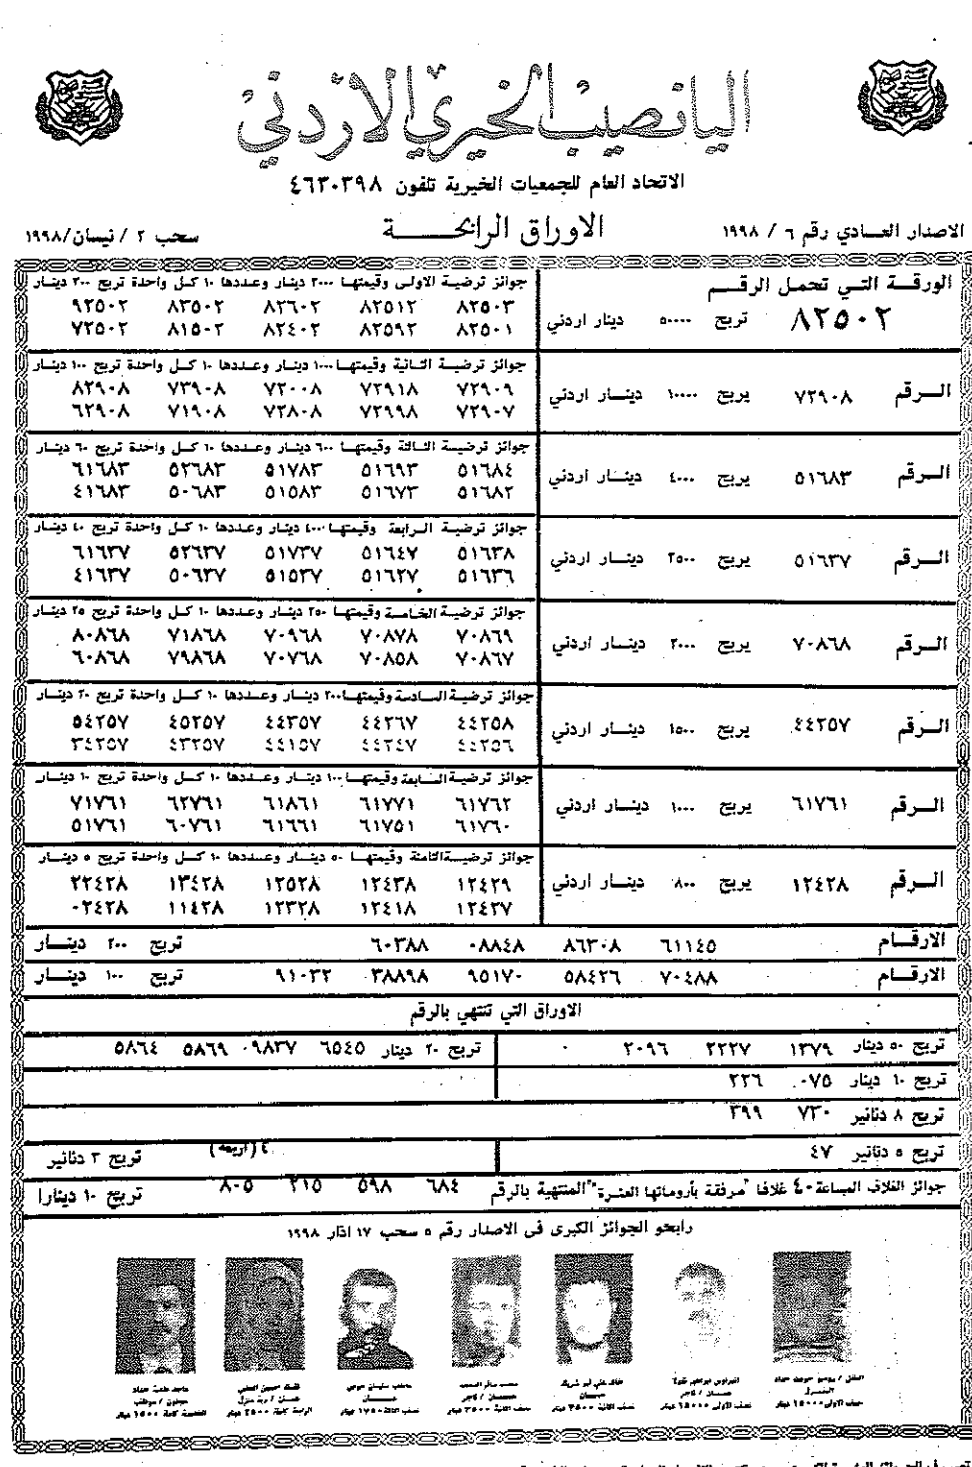 اليانصيب الخيري الاردني
الاتحاد العام للجمعيات الخيرية تلفون ٤٦٣٠٣٩٨
الاصدار العادي رقم ٦ / ١٩٩٨
الاوراق الرابحة
سحب ٢ / نيسان/١٩٩٨
الورقة التي تحمل الرقم
٨٢٥٠٢ تربح ٥٠٠٠٠ دينار اردني
جوائز ترضية الاولى وقيمتها ٣٠٠٠ دينار وعددها ١٠ كل واحدة تربح ٣٠٠ دينار
٨٢٥٠٣ ٨٢٥١٢ ٨٢٦٠٢ ٨٣٥٠٢ ٩٢٥٠٢
٨٢٥٠١ ٨٢٥٩٢ ٨٢٤٠٢ ٨١٥٠٢ ٧٢٥٠٢
الرقم ٧٢٩٠٨ يربح ١٠٠٠٠ دينار اردني
جوائز ترضية الثانية وقيمتها ١٠٠٠ دينار وعددها ١٠ كل واحدة تربح ١٠٠ دينار
٧٢٩٠٩ ٧٢٩١٨ ٧٢٠٠٨ ٧٣٩٠٨ ٨٢٩٠٨
٧٢٩٠٧ ٧٢٩٩٨ ٧٢٨٠٨ ٧١٩٠٨ ٦٢٩٠٨
الرقم ٥١٦٨٣ يربح ٤٠٠٠ دينار اردني
جوائز ترضية الثالثة وقيمتها ٦٠٠ دينار وعددها ١٠ كل واحدة تربح ٦٠ دينار
٥١٦٨٤ ٥١٦٩٣ ٥١٧٨٣ ٥٢٦٨٣ ٦١٦٨٣
٥١٦٨٢ ٥١٦٧٣ ٥١٥٨٣ ٥٠٦٨٣ ٤١٦٨٣
الرقم ٥١٦٣٧ يربح ٢٥٠٠ دينار اردني
جوائز ترضية الرابعة وقيمتها ٤٠٠ دينار وعددها ١٠ كل واحدة تربح ٤٠ دينار
٥١٦٣٨ ٥١٦٤٧ ٥١٧٣٧ ٥٢٦٣٧ ٦١٦٣٧
٥١٦٣٦ ٥١٦٢٧ ٥١٥٣٧ ٥٠٦٣٧ ٤١٦٣٧
الرقم ٧٠٨٦٨ يربح ٢٠٠٠ دينار اردني
جوائز ترضية الخامسة وقيمتها ٢٥٠ دينار وعددها ١٠ كل واحدة تربح ٢٥ دينار
٧٠٨٦٩ ٧٠٨٧٨ ٧٠٩٦٨ ٧١٨٦٨ ٨٠٨٦٨
٧٠٨٦٧ ٧٠٨٥٨ ٧٠٧٦٨ ٧٩٨٦٨ ٦٠٨٦٨
الرقم ٤٤٢٥٧ يربح ١٥٠٠ دينار اردني
جوائز ترضية السادسة وقيمتها ٢٠٠ دينار وعددها ١٠ كل واحدة تربح ٢٠ دينار
٤٤٢٥٨ ٤٤٢٦٧ ٤٤٣٥٧ ٤٥٢٥٧ ٥٤٢٥٧
٤٤٢٥٦ ٤٤٢٤٧ ٤٤١٥٧ ٤٣٢٥٧ ٣٤٢٥٧
الرقم ٦١٧٦١ يربح ١٠٠٠ دينار اردني
جوائز ترضية السابعة وقيمتها ١٠٠ دينار وعددها ١٠ كل واحدة تربح ١٠ دينار
٦١٧٦٢ ٦١٧٧١ ٦١٨٦١ ٦٢٧٦١ ٧١٧٦١
٦١٧٦٠ ٦١٧٥١ ٦١٦٦١ ٦٠٧٦١ ٥١٧٦١
الرقم ١٢٤٢٨ يربح ٨٠٠ دينار اردني
جوائز ترضية الثامنة وقيمتها ٥٠ دينار وعددها ١٠ كل واحدة تربح ٥ دينار
١٢٤٢٩ ١٢٤٣٨ ١٢٥٢٨ ١٣٤٢٨ ٢٢٤٢٨
١٢٤٢٧ ١٢٤١٨ ١٢٣٢٨ ١١٤٢٨ ٠٢٤٢٨
الارقام ٦١١٤٥ ٨٦٣٠٨ ٠٨٨٤٨ ٦٠٣٨٨ تربح ٢٠٠ دينار
الارقام ٧٠٤٨٨ ٥٨٤٢٦ ٩٥١٧٠ ٣٨٨٩٨ ٩١٠٣٢ تربح ١٠٠ دينار
الاوراق التي تنتهي بالرقم
تربح ٥٠ دينار ١٣٧٩ ٢٢٢٧ ٢٠٩٦ تربح ٢٠ دينار ٦٥٤٥ ٩٨٣٧ ٥٨٦٩ ٥٨٦٤
تربح ١٠ دينار ٠٧٥ ٢٢٦
تربح ٨ دنانير ٧٣٠ ٣٩٩
تربح ٥ دنانير ٤٧ ٤ (اربعة) تربح ٣ دنانير
جوائز الغلاف المباعة ٤٠ غلافا "مرفقة بأروماتها العشرة" المنتهية بالرقم ٦٨٤ ٥٩٨ ٢١٥ ٨٠٥ تربح ١٠ دينارا
رابحو الجوائز الكبرى في الاصدار رقم ٥ سحب ١٧ اذار ١٩٩٨